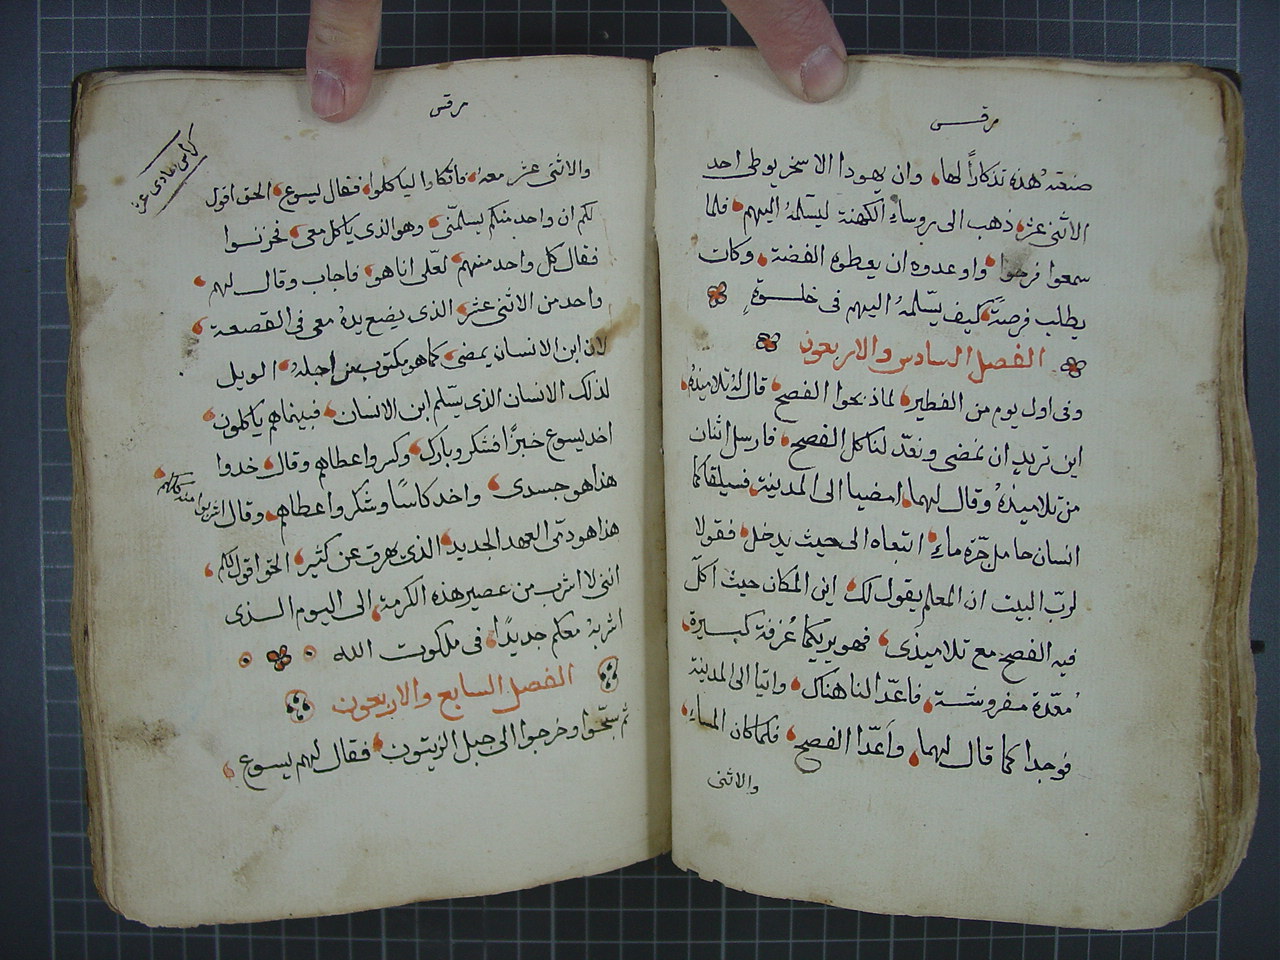 مرقس
صنعته هذه تذكاراً لها، وان يهودا الاسخريوطى احد
الاثنى عشر، ذهب الى روساء الكهنة ليسلمهُ اليهم، فلما
سمعوا فرحوا، واوعدوه ان يعطوه الفضة، وكان
يطلب فرصةً كيف يسّلمهُ اليهم فى خلوةٍ
الفصل السادس والاربعون
وفى اول يوم من الفطير، لماذبحوا الفصح، قال لهُ تلاميذهُ،
اين تريد ان نمضى ونعدّ لناكل الفصح، فارسل اثنان
من تلاميذهُ وقال لهما، امضيا الى المدينة، فسيلقاكما
انسان حامل جرّة ماءٍ، اتبعاه الى حيث يدخل، فقولا
لربّ البيت ان المعلم يقول لك، اين المكان حيث اكلّ
فيه الفصح مع تلاميذى، فهو يريكما غُرفة كبيرة،
مُعدّة مفروشة، فاعدّا لنا هناك، واتيا الى المدينة
فوجدا كما قال لهما، واَعدّا الفصح، فلما كان المساءِ،
والاثنى
مرقس
كراس حادى عشر
والاثنى عشر معهُ، فاتكاوا لياكلوا، فقال يسوع، الحق اقول
لكم ان واحد منكم يسلمّنى، وهو الذى ياكل معى، فحزنوا
فقال كل واحد منهم، لعلّى انا هو، فاجاب وقال لهم،
واحد من الاثنى عشر، الذى يضع يدهُ معى فى القصعة،
لان ابن الانسان يمضى، كما هو مكتوب من اجلهُ، الويل
لذلك الانسان الذى يسّلم ابن الانسان، فبينما هم ياكلون،
اخد يسوع خبزًا فشكر وبارك، وكسر واعطاهم وقال، خدوا
هذا هو جسدى، واخد كاسًا وشكر واعطاهم، وقال اشربوا منه كلكم،
هذا هو دمّى العهد الجديد، الذى يهرق عن كثير، الحق اقول لكم،
اننى لا اشرب من عصير هذه الكرمة، الى اليوم الذى
اشربهُ معكم جديدًا، فى ملكوت الله
الفصل السابع والاربعون
ثم سبّحوا وخرجوا الى جبل الزيتون، فقال لهم يسوع،